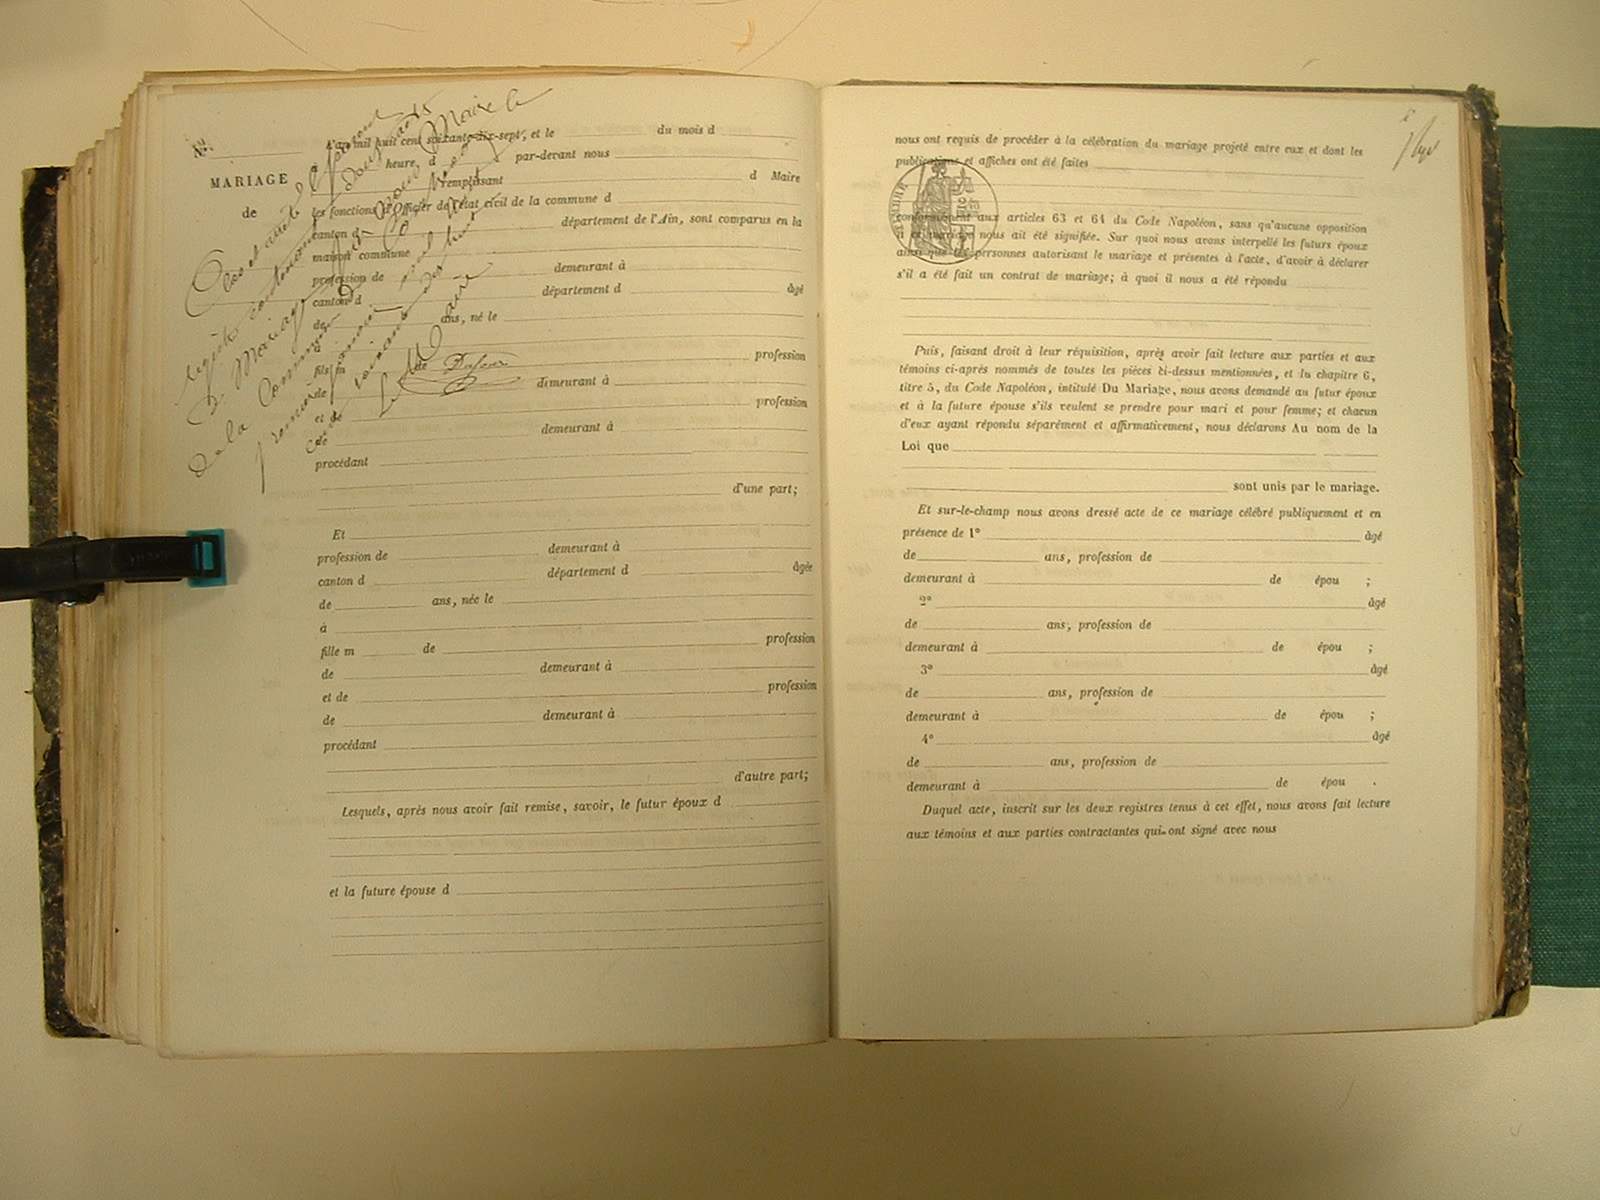 N.º
MARIAGE
de
L'an mil huit cent soixante-dix-sept, et le du mois d
à heure, d par-devant nous
remplissant d Maire
les fonctions d'Officier de l'état civil de la commune d
canton d département de l'Ain, sont comparus en la
maison commune
profession de demeurant à
canton d département d âgé
de ans, né le
à
fils m profession
de demeurant à
et de profession
de demeurant à
procédant
d'une part;
Et
profession de demeurant à
canton d département d âgée
de ans, née le
à
fille m de profession
de demeurant à
et de profession
de demeurant à
procédant
d'autre part;
Lesquels, après nous avoir fait remise, savoir, le futur époux d
et la future épouse d
Clos et arrêté le présent
registre contenant
Mariages
de la Commune
Le Maire
nous ont requis de procéder à la célébration du mariage projeté entre eux et dont les
publications et affiches ont été faites
conformément aux articles 63 et 64 du Code Napoléon, sans qu'aucune opposition
à ce mariage nous ait été signifiée. Sur quoi nous avons interpellé les futurs époux
ainsi que les personnes autorisant le mariage et présentes à l'acte, d'avoir à déclarer
s'il a été fait un contrat de mariage; à quoi il nous a été répondu
Puis, faisant droit à leur réquisition, après avoir fait lecture aux parties et aux
témoins ci-après nommés de toutes les pièces ci-dessus mentionnées, et du chapitre 6,
titre 5, du Code Napoléon, intitulé Du Mariage, nous avons demandé au futur époux
et à la future épouse s'ils veulent se prendre pour mari et pour femme; et chacun
d'eux ayant répondu séparément et affirmativement, nous déclarons Au nom de la
Loi que
sont unis par le mariage.
Et sur-le-champ nous avons dressé acte de ce mariage célébré publiquement et en
présence de 1º âgé
de ans, profession de
demeurant à de épou ;
2º âgé
de ans, profession de
demeurant à de épou ;
3º âgé
de ans, profession de
demeurant à de épou ;
4º âgé
de ans, profession de
demeurant à de épou .
Duquel acte, inscrit sur les deux registres tenus à cet effet, nous avons fait lecture
aux témoins et aux parties contractantes qui ont signé avec nous